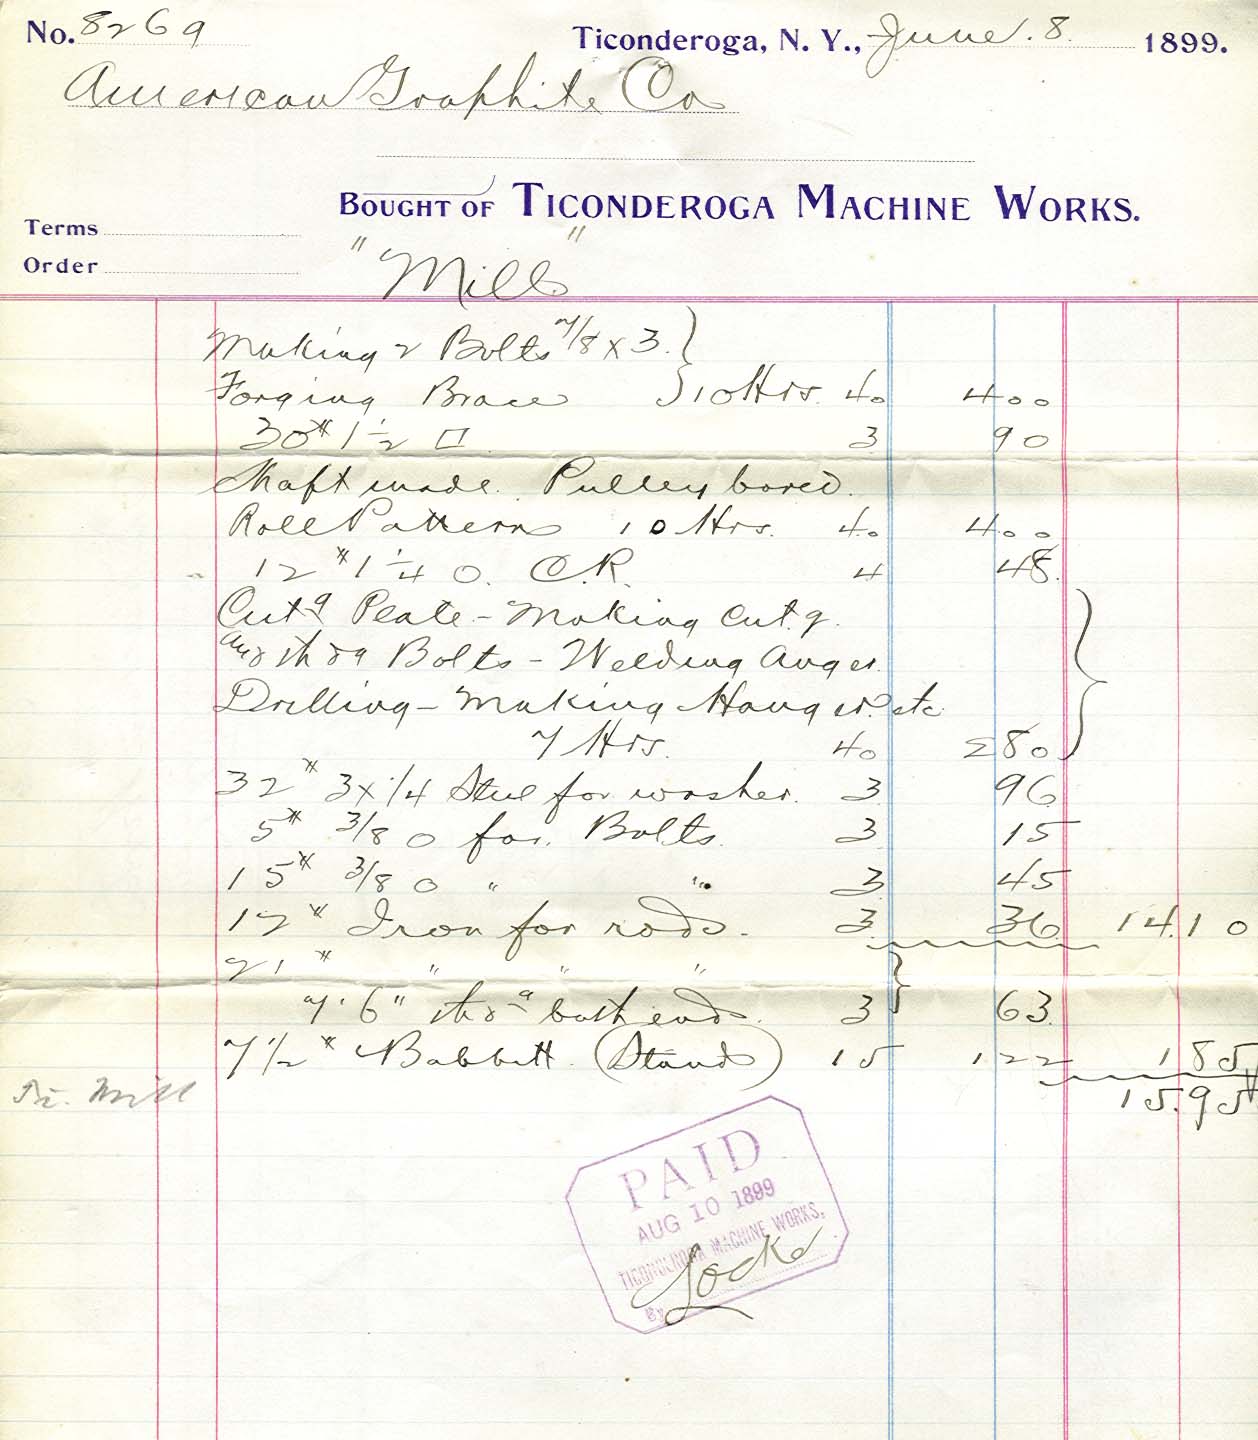 No. 8269
Ticonderoga, N. Y., June. 8. 1899.
American Graphite Co
Bought of Ticonderoga Machine Works.
Terms
Order
"Mill"
Making 2 Bolts 7/8 x 3.
Forging Brace 10 Hrs. 40 400
30# 1 1/2 □ 3 90
Shaft made. Pulley bored.
Roll Pattern 10 Hrs. 40 400
12 # 1 1/4 O. C.R. 4 48
Cutg Plate - Making Cutg.
and thdg Bolts - Welding Auger
Drilling - Making Hanger. etc
7 Hrs. 40 280
32 # 3x1/4 Steel for washer. 3 96
5# 3/8 O for. Bolts. 3 15
15# 3/8 O " " 3 45
12 # Iron for rods. 3 36 14.10
21 # " " "
7' 6" thdg both ends. 3 63
7 1/2 # Babbitt. (Stand) 15 122 185
Ti. Mill
15.95
PAID
AUG 10 1899
TICONDEROGA MACHINE WORKS.
By Locke